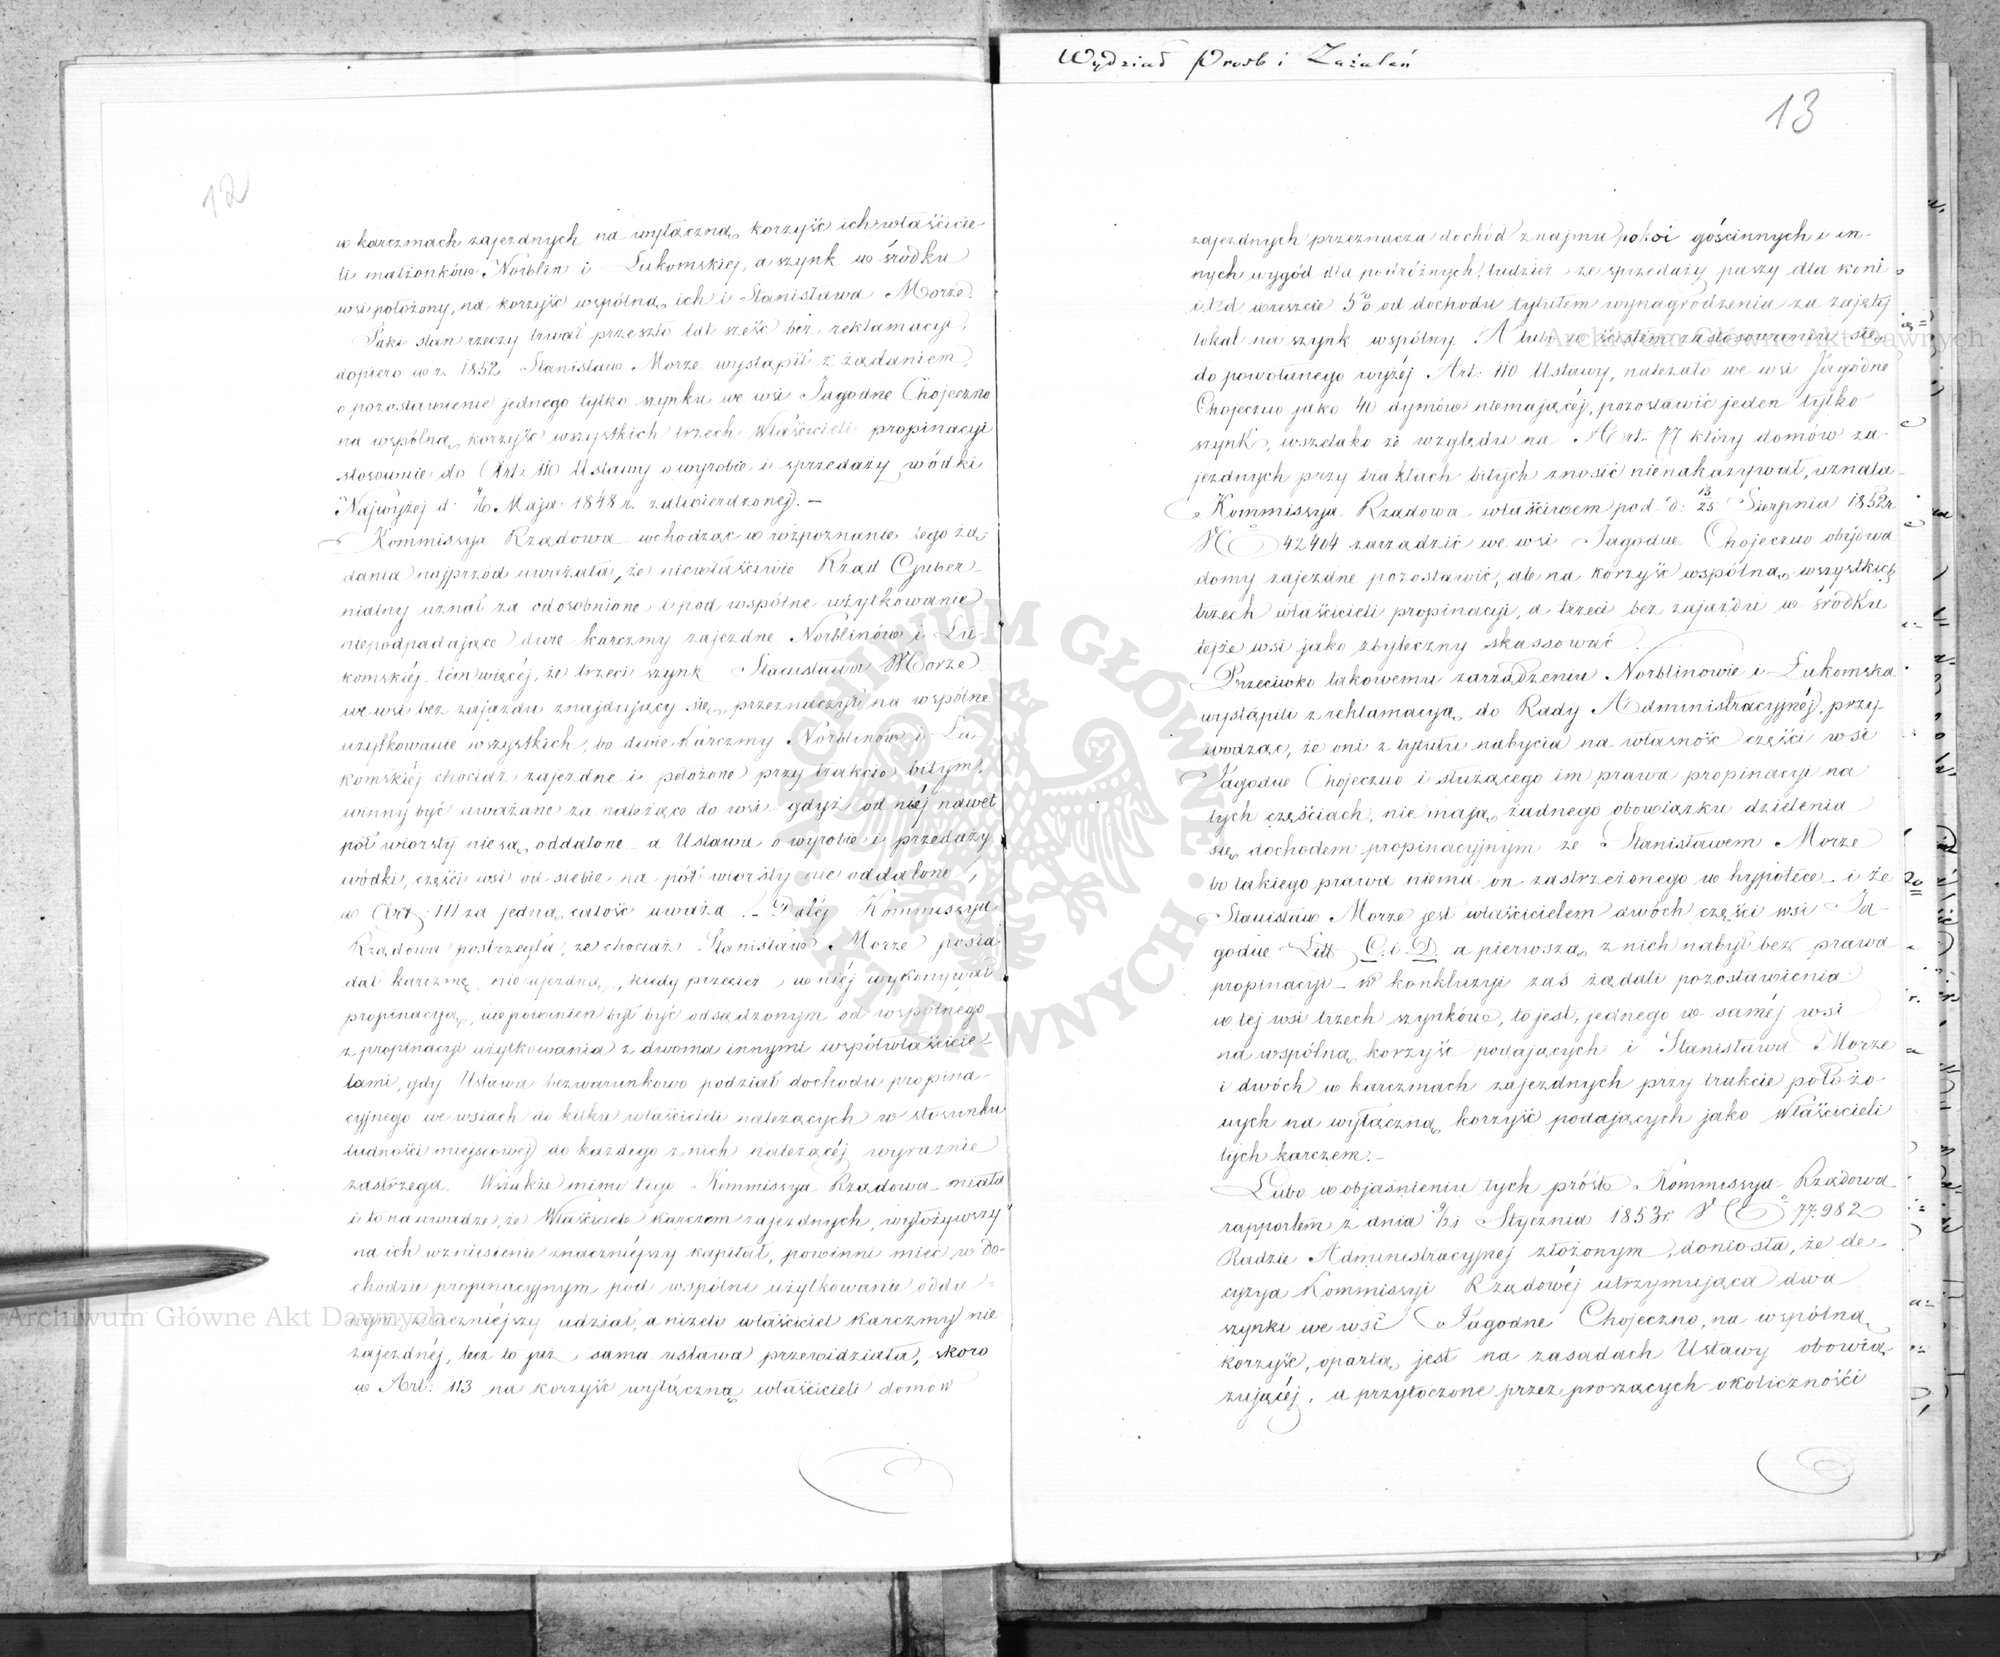 12
w karczmach zajezdnych na wyłączną korzyść ich właścicie-
li małżonków Norblin i Łukomskiej, a szynk w środku
wsi położony, na korzyść wspólną ich i Stanisława Morze.
Taki stan rzeczy trwał przeszło lat sześć bez reklamacyi,
dopiero w r. 1852 Stanisław Morze wystąpił z żądaniem,
o pozostawienie jednego tylko szynku we wsi Jagodne Chojeczno
na wspólną korzyść wszystkich trzech Właścicieli propinacyi
stosownie do Art: 110 Ustawy o wyrobie i sprzedaży wódki
Najwyżej d. 4/16 Maja 1848 r. zatwierdzonej. —
Kommissya Rządowa wchodząc w rozpoznanie tego żą-
dania najprzód uważała, że niewłaściwie Rząd Guber-
nialny uznał za odosobnione i pod wspólne użytkowanie
niepodpadające dwie karczmy zajezdne Norblinów i Łu-
komskiéj tém więcéj, że trzeci szynk Stanisława Morze
we wsi bez zajazdu znajdujący się, przeznaczył na wspólne
użytkowanie wszystkich, bo dwie karczmy Norblinów i Łu-
komskiéj chociaż zajezdne i położone przy trakcie bitym,
winny być uważane za należące do wsi gdyż od niéj nawet
pół wiorsty nie są oddalone a Ustawa o wyrobie i przedaży
wódki, części wsi od siebie na pół wiorsty nie oddalone,
w Art: 111 za jedną całość uważa. – Daléj Kommissya
Rządowa postrzegła, że chociaż Stanisław Morze posia-
dał karczmę niezajezdną, kiedy przecież w niéj wykonywał
propinacyą, niepowinien był być odsądzonym od wspólnego
z propinacyi użytkowania z dwoma innymi współwłaścicie-
lami, gdy Ustawa bezwarunkowo podział dochodu propina-
cyjnego we wsiach do kilku właścicieli należących w stosunku
ludności miejscowej do każdego z nich należącéj wyraźnie
zastrzega. Wszakże mimo tego Kommissya Rządowa miała
i to na uwadze, że Właściciele karczem zajezdnych, wyłożywszy
na ich wzniesienie znaczniejszy kapitał, powinni mieć w do-
chodzie propinacyjnym pod wspólne użytkowanie odda-
nym znaczniejszy udział, aniżeli właściciel karczmy nie
zajezdnéj, lecz to już sama ustawa przewidziała, skoro
w Art: 113 na korzyść wyłączną właścicieli domów
Wydział Prośb i Zażaleń
13
zajezdnych przeznacza dochód z najmu pokoi gościnnych i in-
nych wygód dla podróżnych, tudzież ze sprzedaży paszy dla koni
i t d wreszcie 5% od dochodu tytułem wynagrodzenia za zajęty
lokal na szynk wspólny. A lubo w ścisłem zastosowaniu się
do powołanego wyżéj Art: 110 Ustawy, należało we wsi Jagodne
Chojeczno jako 40 dymów niemającéj, pozostawić jeden tylko
szynk, wszelako ze względu na Art. 77 który domów za-
jezdnych przy traktach bitych znosić nienakazywał, uznała
Kommissya Rządowa właściwem pod d: 13/25 Sierpnia 1852 r
No 42404 zarządzić we wsi Jagodne Chojeczno obydwa
domy zajezdne pozostawić, ale na korzyść wspólną wszystkich
trzech właścicieli propinacyi, a trzeci bez zajazdu w środku
tejże wsi jako zbyteczny skassować.
Przeciwko takowemu zarządzeniu Norblinowie i Łukomska
wystąpili z reklamacyą do Rady Administracyjnéj, przy-
wodząc, że oni z tytułu nabycia na własność części wsi
Jagodne Chojeczno i służącego im prawa propinacyi na
tych częściach, nie mają żadnego obowiązku dzielenia
się dochodem propinacyjnym ze Stanisławem Morze
bo takiego prawa niema on zastrzeżonego w hypotece i że
Stanisław Morze jest właścicielem dwóch części wsi Ja-
godne Litt C. i D. a pierwszą z nich nabył bez prawa
propinacyi – w konkluzyi zaś żądali pozostawienia
w tej wsi trzech szynków, to jest, jednego w saméj wsi
na wspólną korzyść podających i Stanisława Morze
i dwóch w karczmach zajezdnych przy trakcie położo-
nych na wyłączną korzyść podających jako Właścicieli
tych karczem. –
Lubo w objaśnieniu tych próśb Kommissya Rządowa
rapportem z dnia 9/21 Stycznia 1853 r. No 77.982
Radzie Administracyjnej złożonym, doniosła, że de-
cyzya Kommissyi Rządowéj utrzymująca dwa
szynki we wsi Jagodne Chojeczno, na wspólną
korzyść, opartą jest na zasadach Ustawy obowią-
zującéj, a przytoczone przez proszących okoliczności